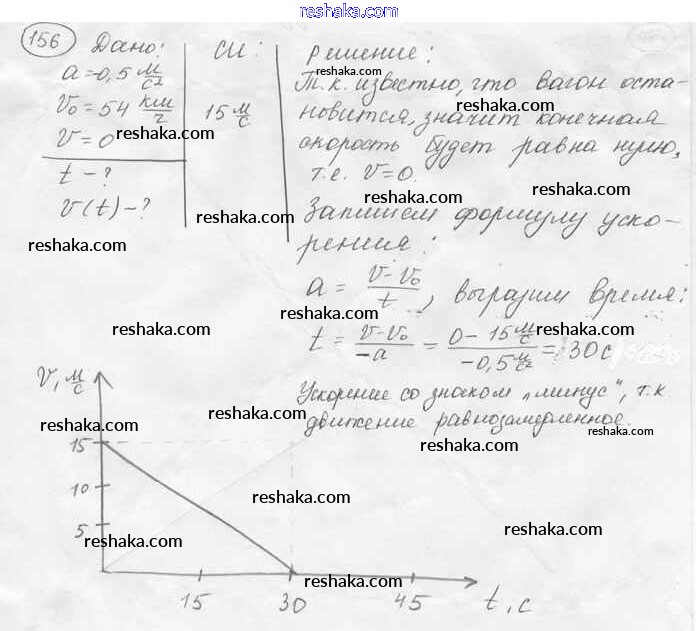 reshaka.com
156 Дано:
a=-0,5 м/с²
v₀=54 км/г
v=0
t-?
v(t)-?
СИ:
15 м/с
Решение:
Т.к. известно, что вагон оста-
новится, значит конечная
скорость будет равна нулю,
т.е. v=0.
Запишем формулу уско-
рения:
a = (v-v₀)/t, выразим время:
t = (v-v₀)/-a = (0-15 м/с)/(-0,5 м/с²) = 30 с
Ускорение со знаком „минус", т.к.
движение равнозамедленное.
V, м/с
15
10
5
15 30 45 t, с
reshaka.com
reshaka.com
reshaka.com
reshaka.com
reshaka.com
reshaka.com
reshaka.com
reshaka.com
reshaka.com
reshaka.com
reshaka.com
reshaka.com
reshaka.com
reshaka.com
reshaka.com
reshaka.com
reshaka.com
reshaka.com